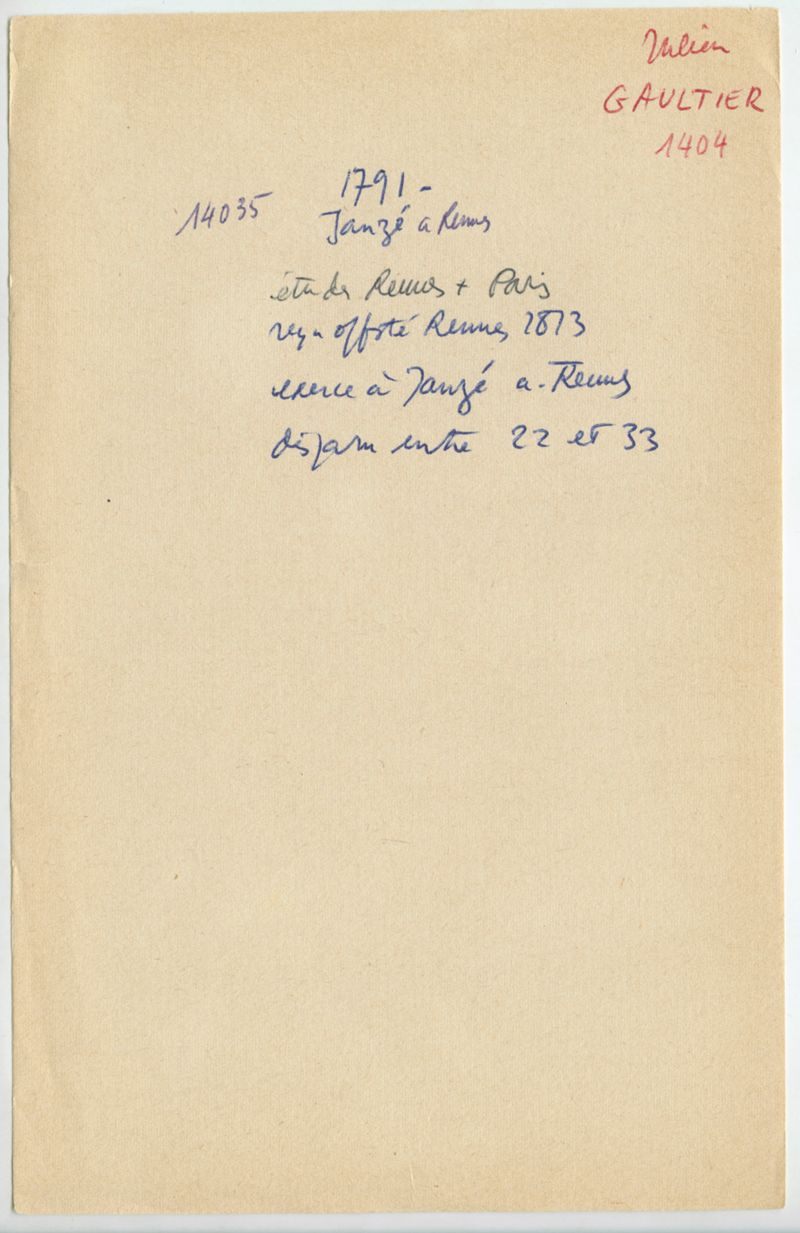 Julien
GAULTIER
1404
1791 -
14035
Janzé a Rennes
études Rennes + Paris
reçu offsté Rennes 1813
exerce à Janzé a. Rennes
disparu entre 22 et 33